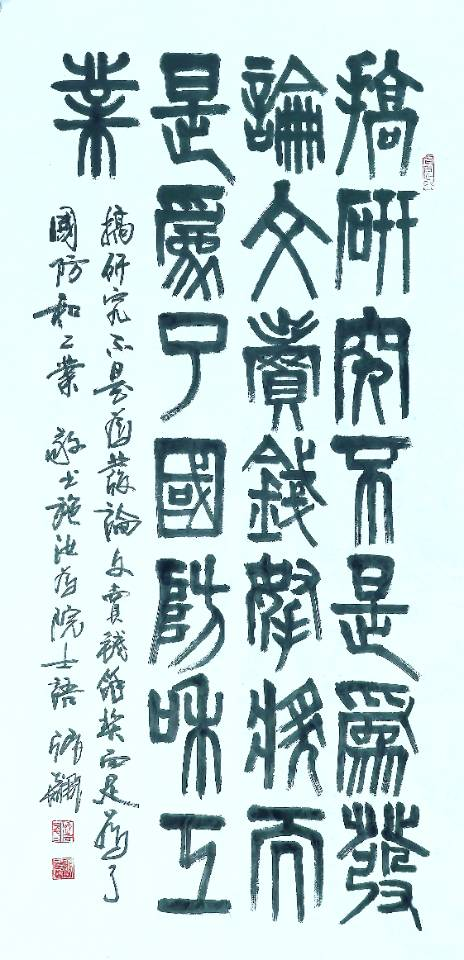 搞研究不是為發
論文賣錢拏獎而
是為了國防和工
業
搞研究不是為發論文賣錢獎而是為了
國防和工業 敬書施汝為院士語